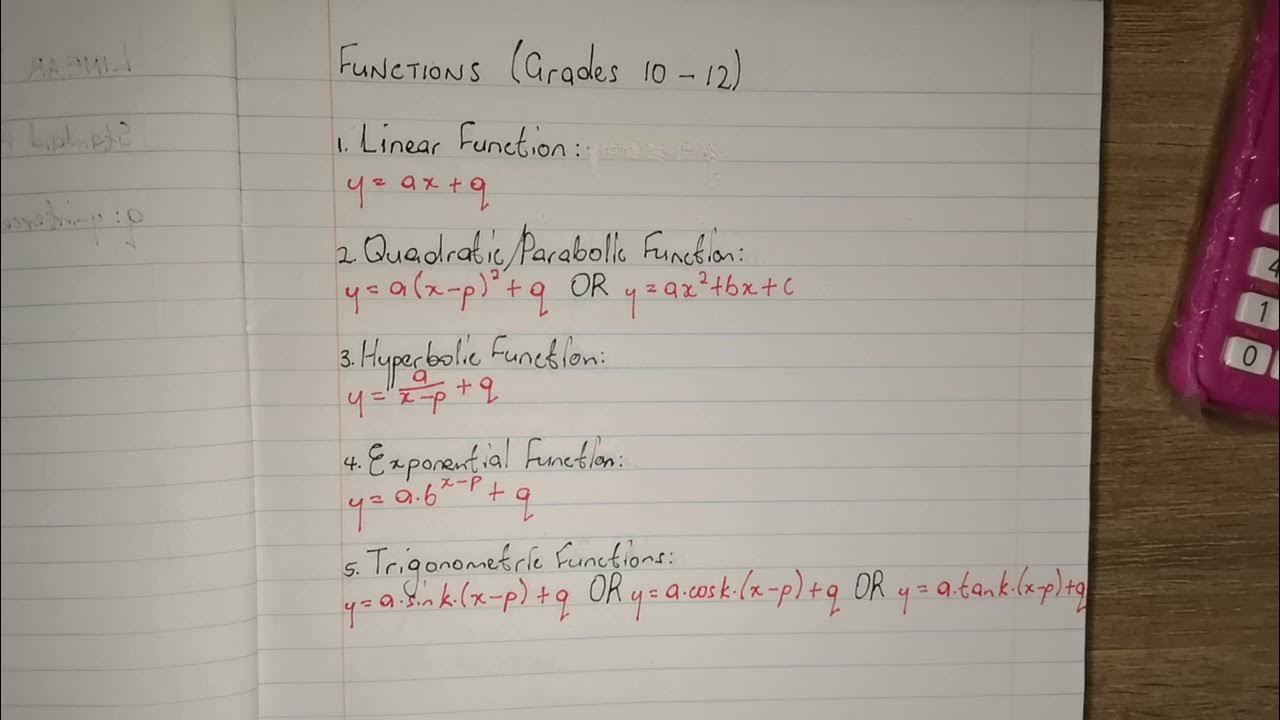 FUNCTIONS (Grades 10 - 12)
1. Linear Function:
y = ax + q
2. Quadratic/Parabolic Function:
y = a(x-p)² + q OR y = ax²+bx+c
3. Hyperbolic Function:
y = a/(x-p) + q
4. Exponential Function:
y = a.b^(x-p) + q
5. Trigonometric Functions:
y = a.sin k.(x-p) + q OR y = a.cos k.(x-p) + q OR y = a.tan k.(x-p)+q
LINEAR
Standard
q: y-interce
4
1
0